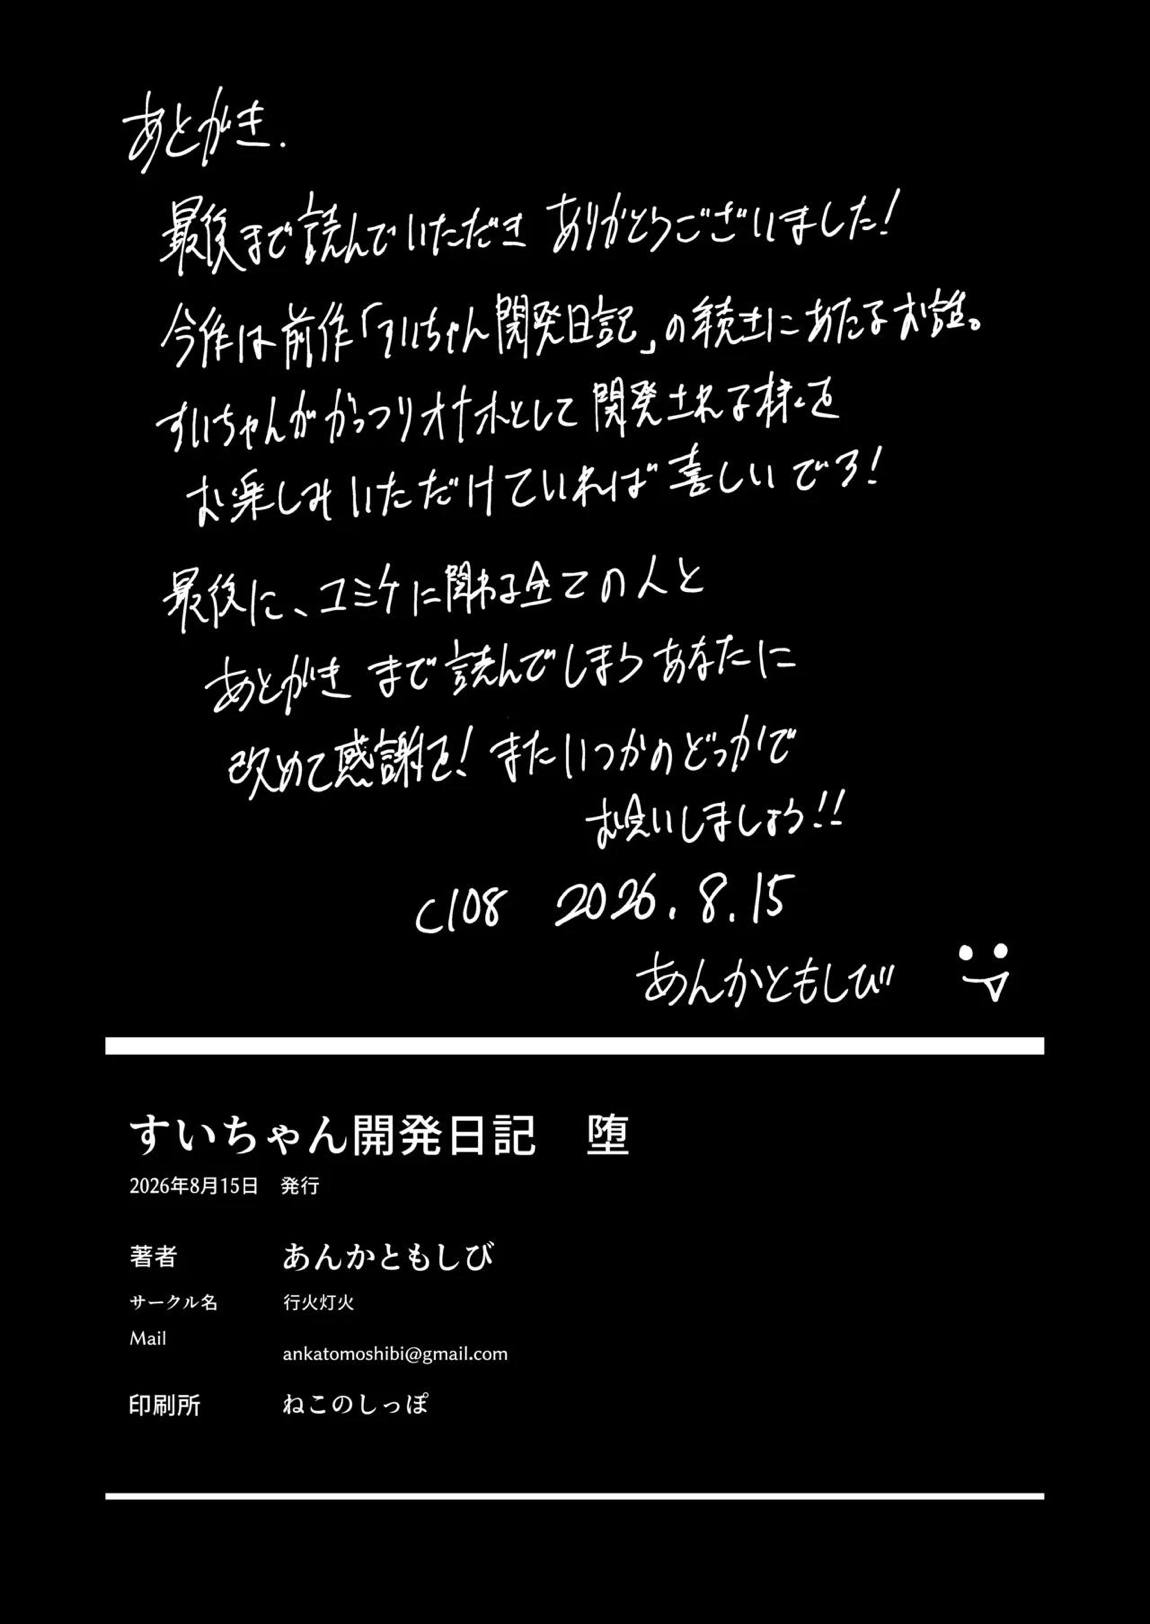 あとがき.
最後まで読んでいただき ありがとうございました!
今作は前作「すいちゃん開発日記」の続きにあたるお話。
すいちゃんががっつりオナホとして開発される様を
お楽しみいただけていれば喜しいです!
最後に、コミケに関わる全ての人と
あとがきまで読んでしまうあなたに
改めて感謝を! またいつかのどっかで
お会いしましょう!!
C108 2026.8.15
あんかともしび
すいちゃん開発日記 堕
2026年8月15日 発行
著者 あんかともしび
サークル名 行火灯火
Mail ankatomoshibi@gmail.com
印刷所 ねこのしっぽ